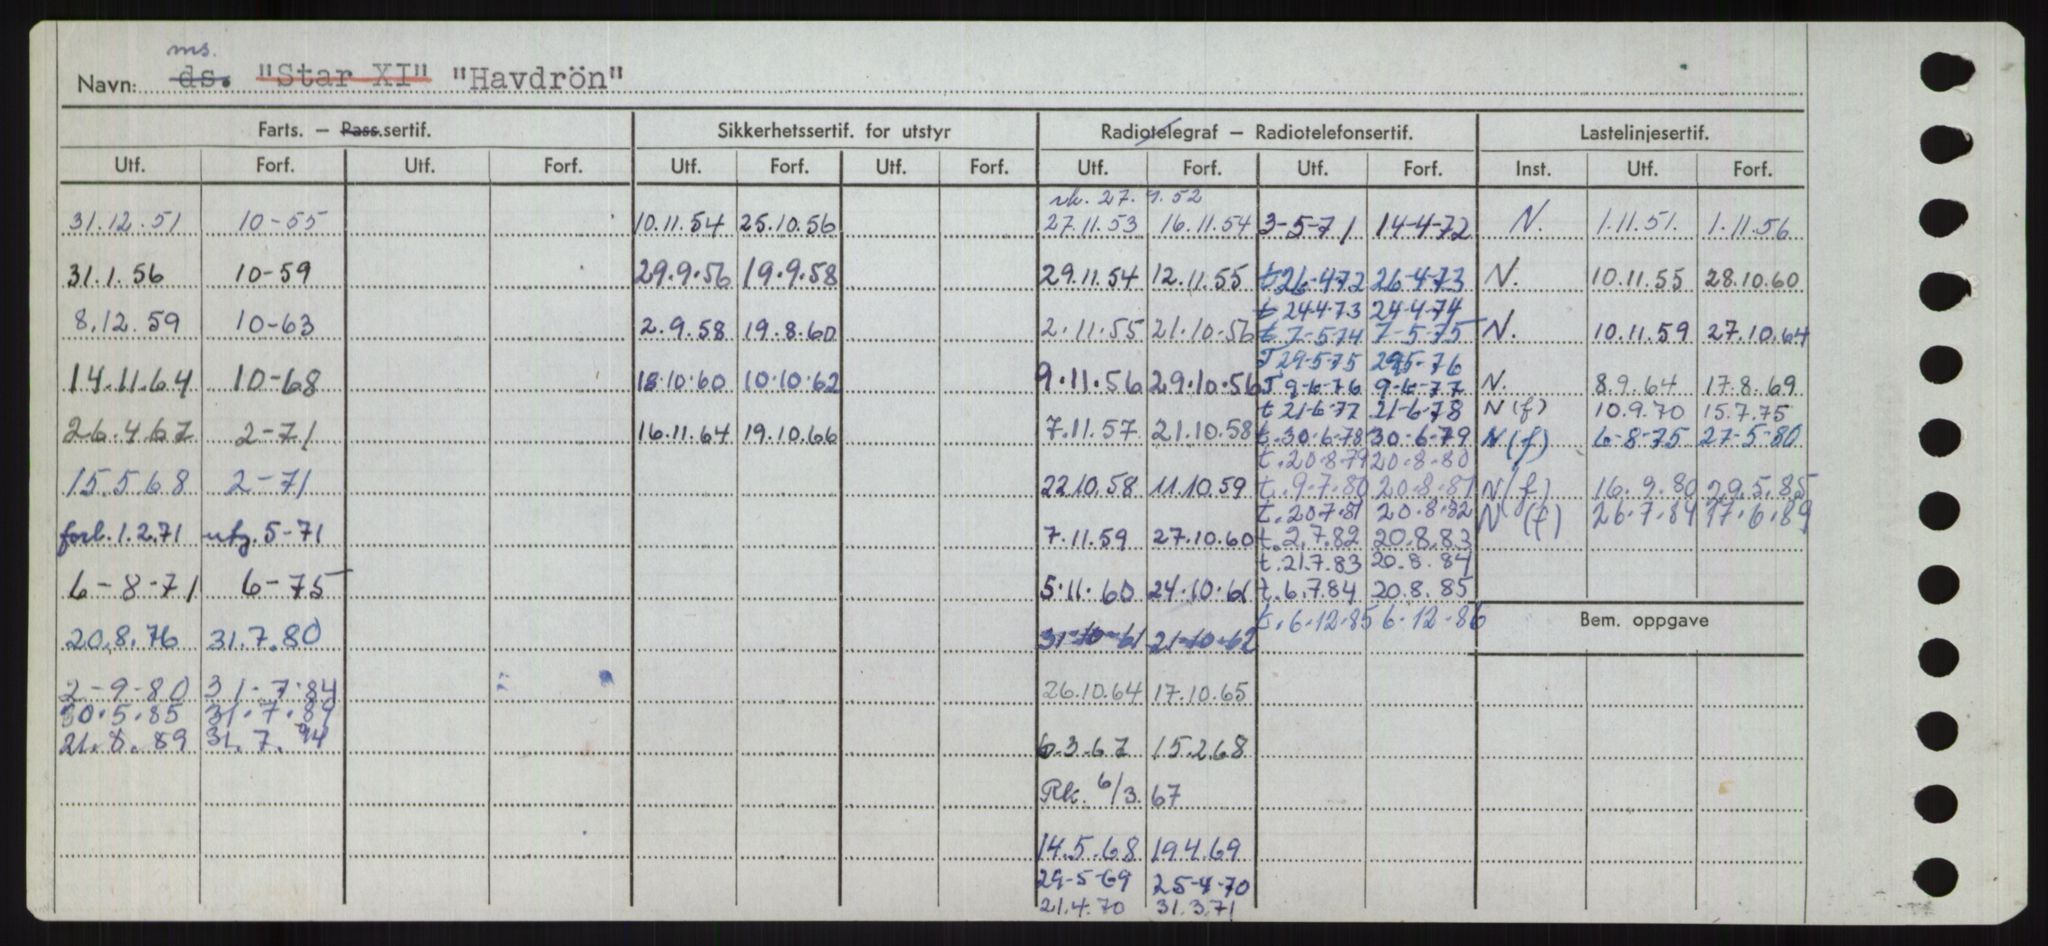 ms.
Navn: ds. "Star XI" "Havdrön"
Farts. — Pass.sertif. Sikkerhetssertif. for utstyr Radiotelegraf — Radiotelefonsertif. Lastelinjesertif.
Utf. Forf. Utf. Forf. Utf. Forf. Utf. Forf. Utf. Forf. Utf. Forf. Inst. Utf. Forf.
rk. 27. 9. 52
31.12.51 10-55 10.11.54 25.10.56 27.11.53 16.11.54 3-5-71 14-4-72 N. 1.11.51. 1.11.56
31.1.56 10-59 29.9.56 19.9.58 29.11.54 12.11.55 t 26-4-72 26-4-73 N. 10.11.55 28.10.60
t 24-4-73 24-4-74
8.12.59 10-63 2.9.58 19.8.60 2.11.55 21.10.56 t. 7-5-74 7-5-75 N. 10.11.59 27.10.64
T 29-5-75 29-5-76
14.11.64 10-68 18.10.60 10.10.62 9.11.56 29.10.56 T. 9-6-76 9-6-77 N. 8.9.64 17.8.69
t 21-6-77 21-6-78 N(f) 10.9.70 15.7.75
26.4.67 2-71 16.11.64 19.10.66 7.11.57 21.10.58 t. 30.6.78 30.6.79 N(f) 6-8-75 27-5-80
t. 20.8.79 20.8.80
15.5.68 2-71 22.10.58 11.10.59 t. 9.7.80 20.8.81 N(f) 16.9.80 29.5.85
t. 20.7.81 20.8.82 N (f) 26.7.84 17.6.89
forl. 1.2.71 utg. 5-71 7.11.59 27.10.60 t. 2.7.82 20.8.83
t. 21.7.83 20.8.84
6-8-71 6-75 5.11.60 24.10.61 t. 6.7.84 20.8.85
t. 6.12.85 6.12.86 Bem. oppgave
20.8.76 31.7.80 31-10-61 21-10-62
2-9-80 31-7-84 26.10.64 17.10.65
30.5.85 31.7.89
21.8.89 31.7.94 6.3.67 15.2.68
Rk. 6/3. 67
14.5.68 19.4.69
29-5-69 25-4-70
21.4.70 31.3.71